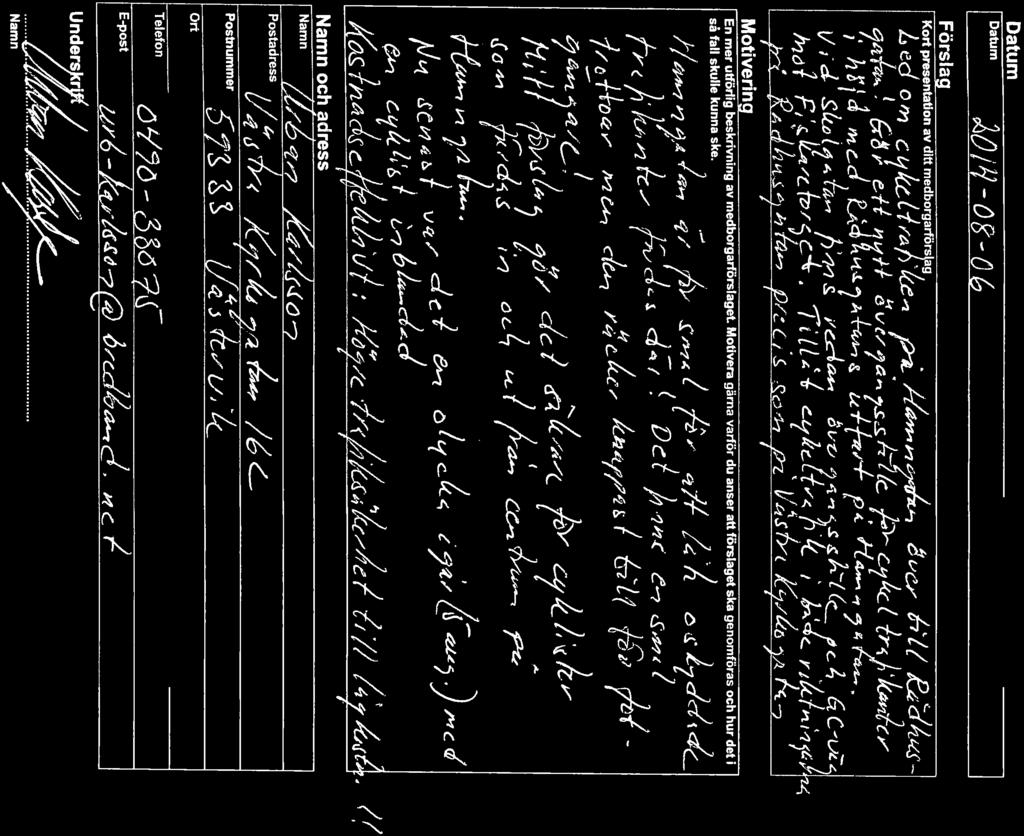 Datum
Datum
2014-08-06
Förslag
Kort presentation av ditt medborgarförslag
Led om cykeltrafiken på Hamngatan över till Rådhus-
gatan! Gör ett nytt övergångsställe för cykeltrafikanter
i höjd med Rådhusgatans utfart på Hamngatan.
Vid Skolgatan finns redan övergångsställe och GC-väg
mot Fiskaretorget. Tillåt cykeltrafik i både riktningarna
på Rådhusgatan precis som på Västra Kyrkogatan
Motivering
En mer utförlig beskrivning av medborgarförslaget. Motivera gärna varför du anser att förslaget ska genomföras och hur det i
så fall skulle kunna ske.
Hamngatan är för smal för att låta oskyddade
trafikanter färdas där! Det finns en smal
trottoar men den räcker knappast till för fot-
gängare!
Mitt förslag gör det säkrare för cyklister
som färdas in och ut från centrum på
Hamngatan.
Nu senast var det en olycka igår (5 aug.) med
en cyklist inblandad
Kostnadseffektivt: Högre trafiksäkerhet till låg kostn. !!
Namn och adress
Namn
Urban Karlsson
Postadress
Västra Kyrkogatan 16C
Postnummer
593 33 Västervik
Ort
Telefon
0490-33075
E-post
urb-karlsson@bredband.net
Underskrift
Urban Karlsson
Namn